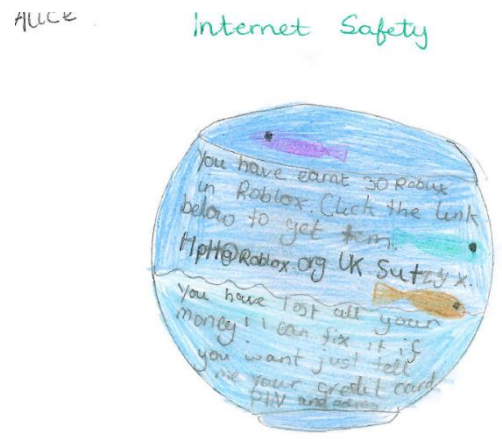 ALICE
Internet Safety
You have earnt 30 Robux
in Roblox. Click the link
below to get tem.
HpH@Roblox.org UK Sutzyx.
You have lost all your
money! I can fix it if
you want just tell
me your credit card
PIN and